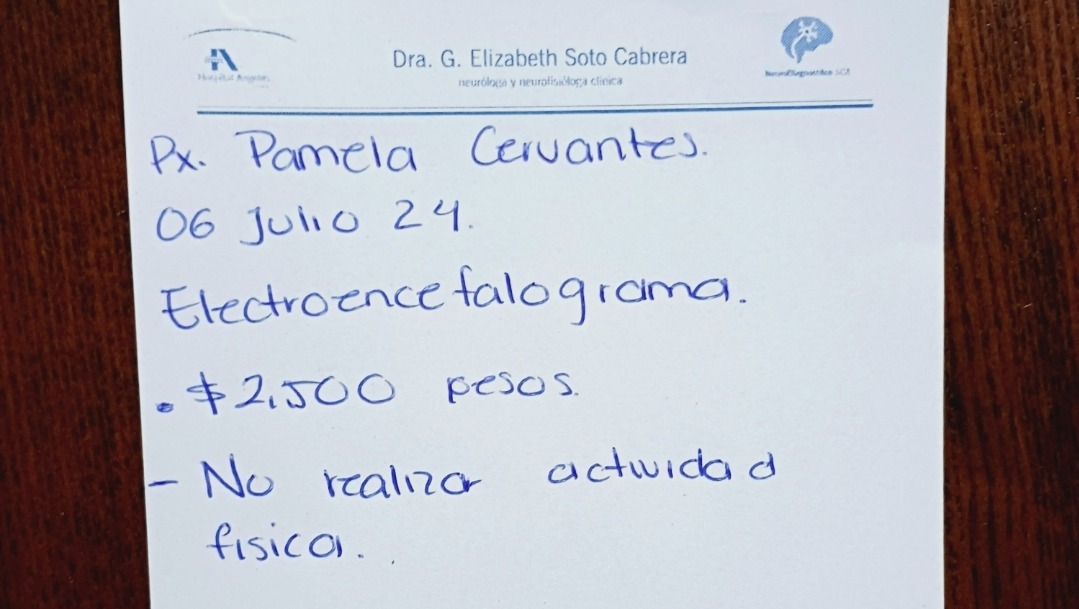 Hospital Angeles
Dra. G. Elizabeth Soto Cabrera
neuróloga y neurofisióloga clínica
NeuroDiagnóstico SCA
Px. Pamela Cervantes.
06 Julio 24.
Electroencefalograma.
. $2,500 pesos.
- No realizar actividad
física.